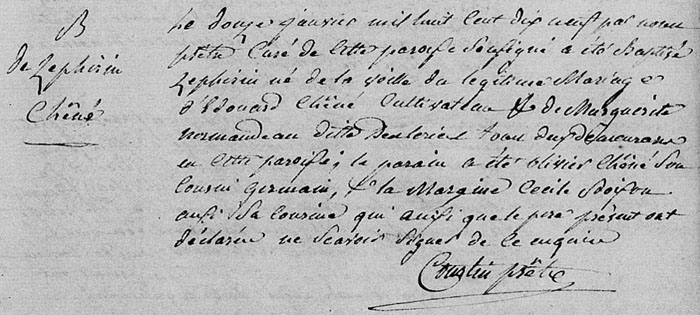 B
de Zephirin
Chêné
Le douze janvier mil huit cent dix neuf par nous
prêtre Curé de cette paroisse soussigné a été baptisé
Zephirin né de la veille du légitime Mariage
d'Edouard Chêné Cultivateur & de Marguerite
normandeau ditte Deslorier tous deux demeurans
en cette paroisse; le parain a été Olivier Chêné Son
Cousin Germain, & la Margine Cecile
aussi Sa Cousine qui ainsi que le pere présent ont
déclarée ne Scavoir Signer de ce enquis
prêtre